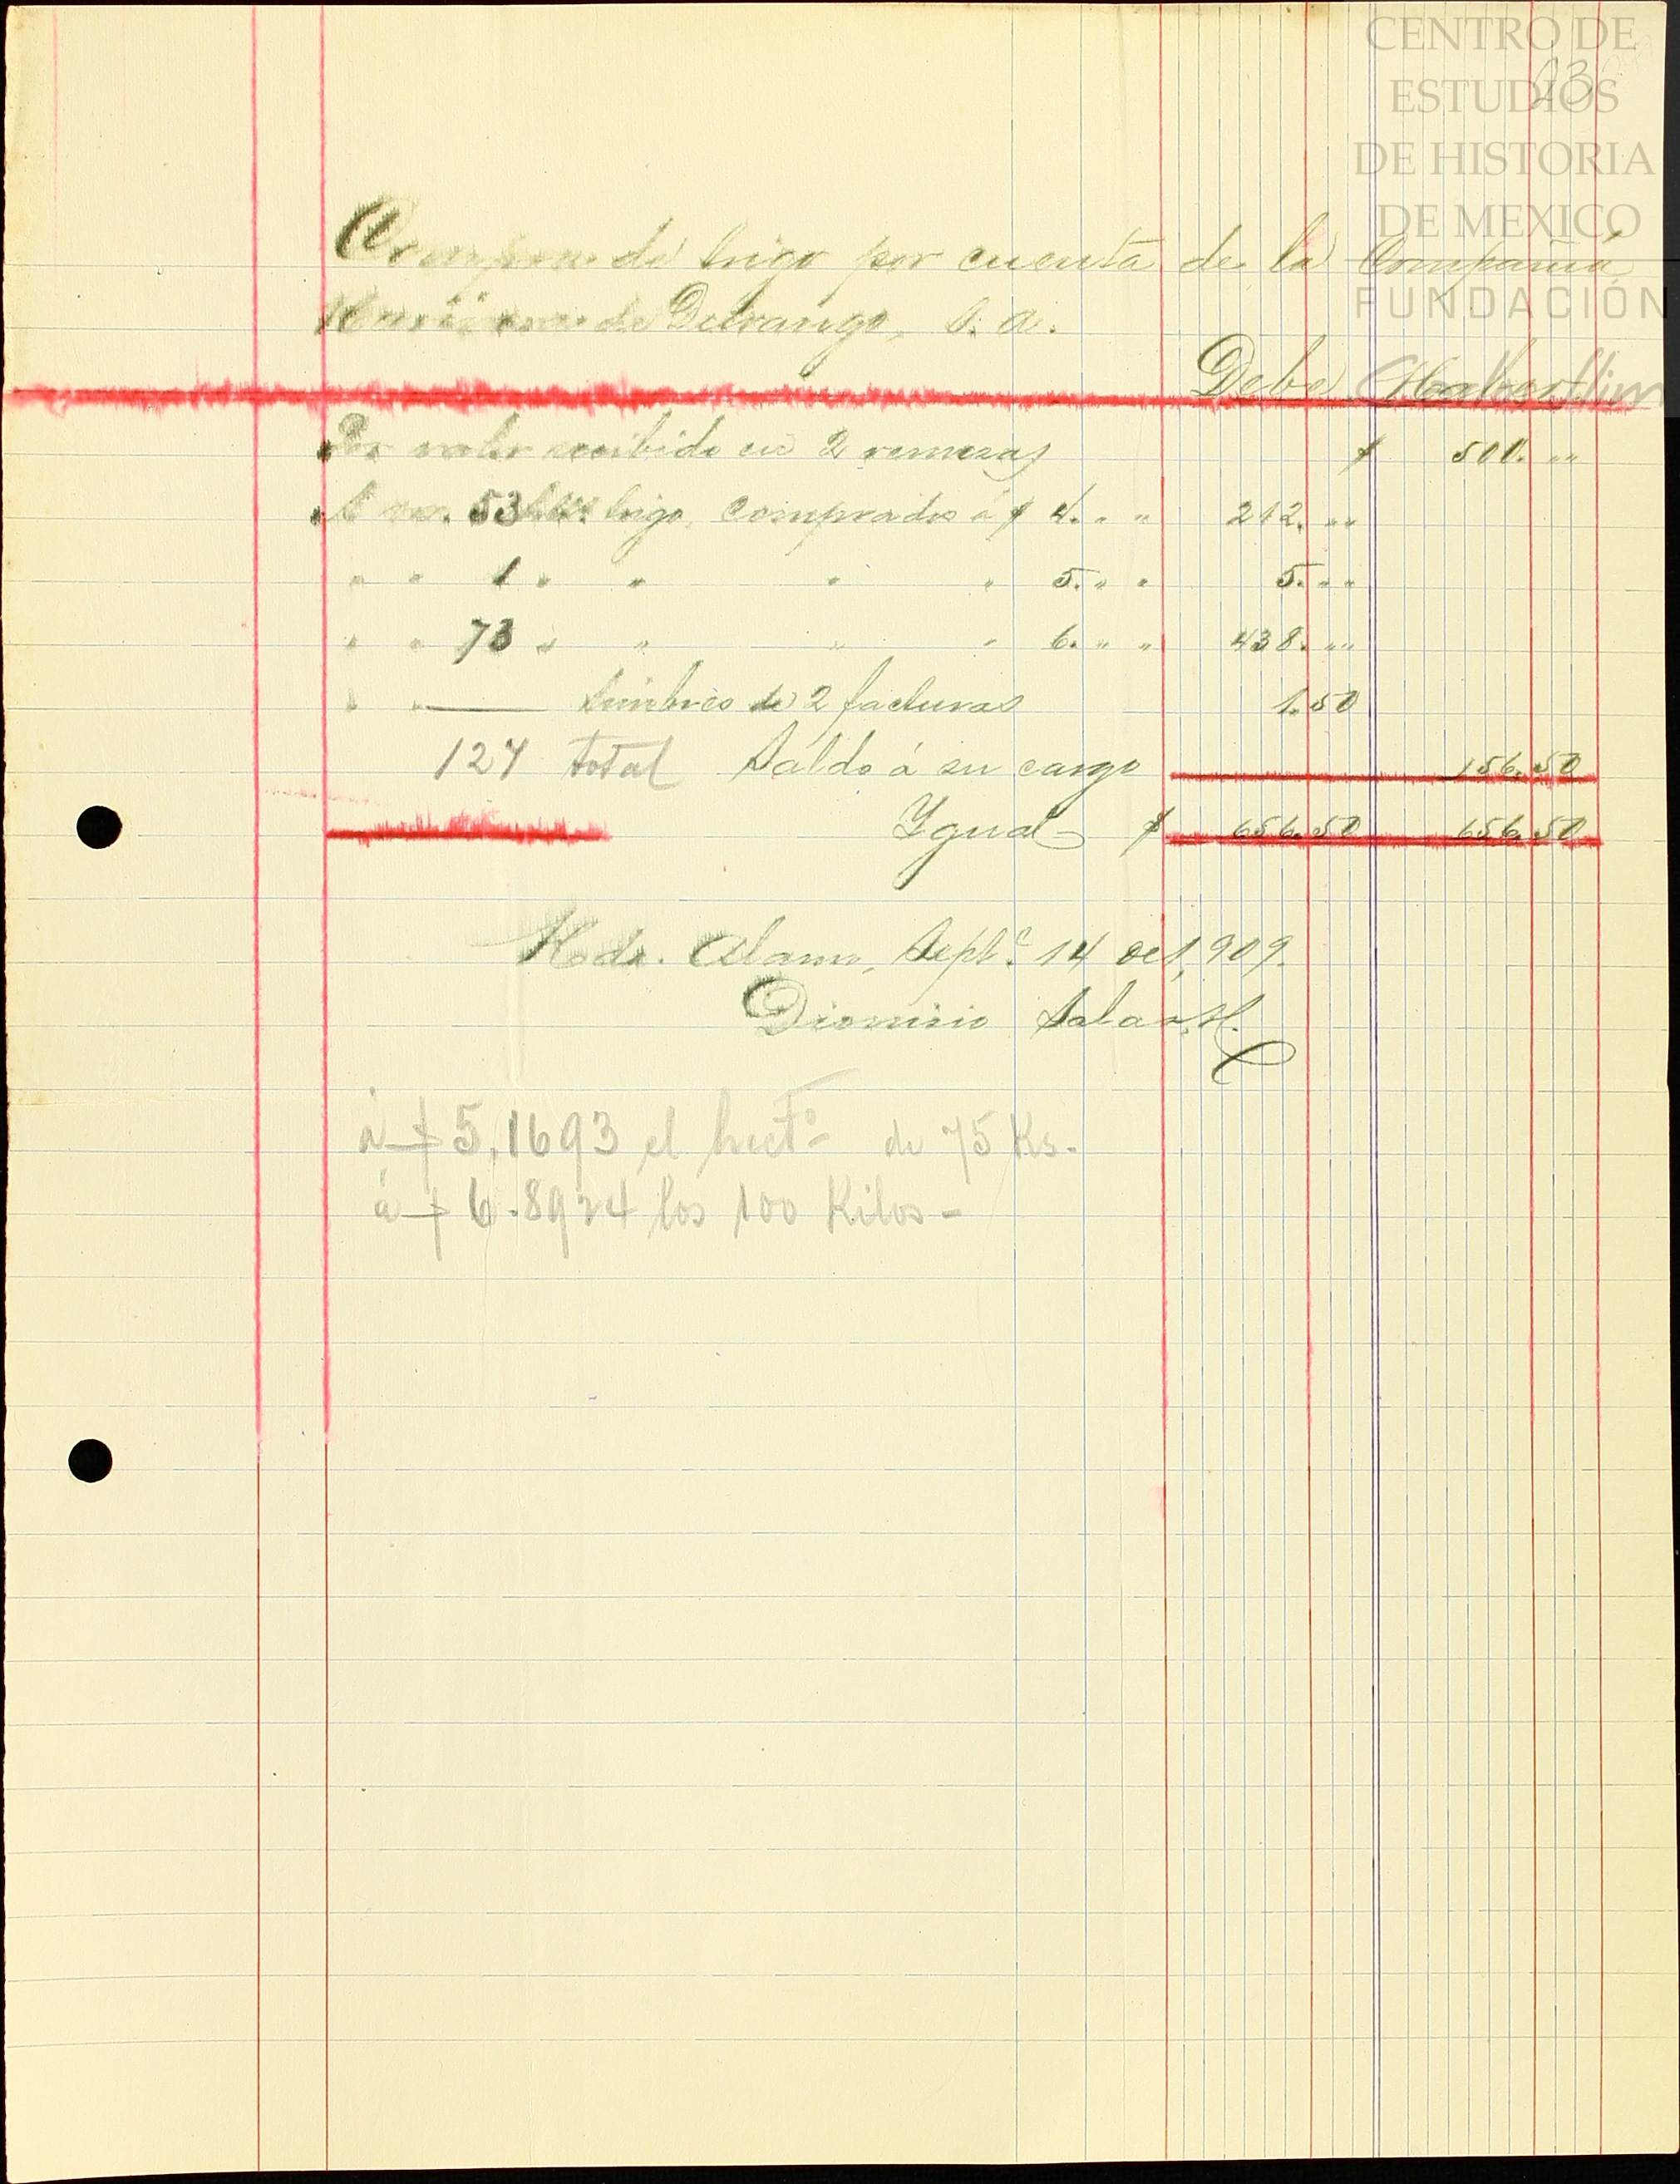 CENTRO DE
ESTUDIOS
DE HISTORIA
DE MEXICO
FUNDACIÓN
Slim
23
Compras de trigo por cuenta de la Compañia
Harinera de Durango, S. A.
Debe Haber
Por valor recibido en 2 remezas $ 500. " "
A su. 53 trigo, comprados á $ 4. " " 212. " "
" " 1 " " " " 5. " " 5. " "
" " 73 " " " " 6. " " 438. " "
" " timbres de 2 facturas 1.50
127 total Saldo á su cargo 156.50
Ygual $ 656.50 656.50
Hda. Alamo, Sept.e 14 de 1,909.
Dionisio Salas H.
á $ 5,1693 el hect.o de 75 Ks.
á $ 6.8924 los 100 Kilos -